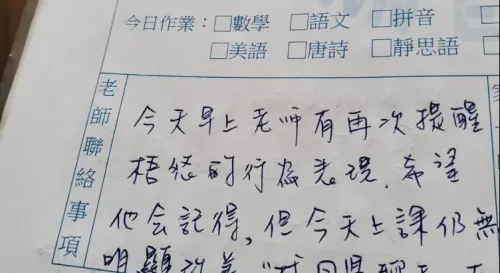 今日作業：□數學 □語文 □拼音
□美語 □唐詩 □靜思語
老師聯絡事項
今天早上老师有再次提醒
梧悠的行為表現，希望
他会記得，但今天上課仍無
明顯改善